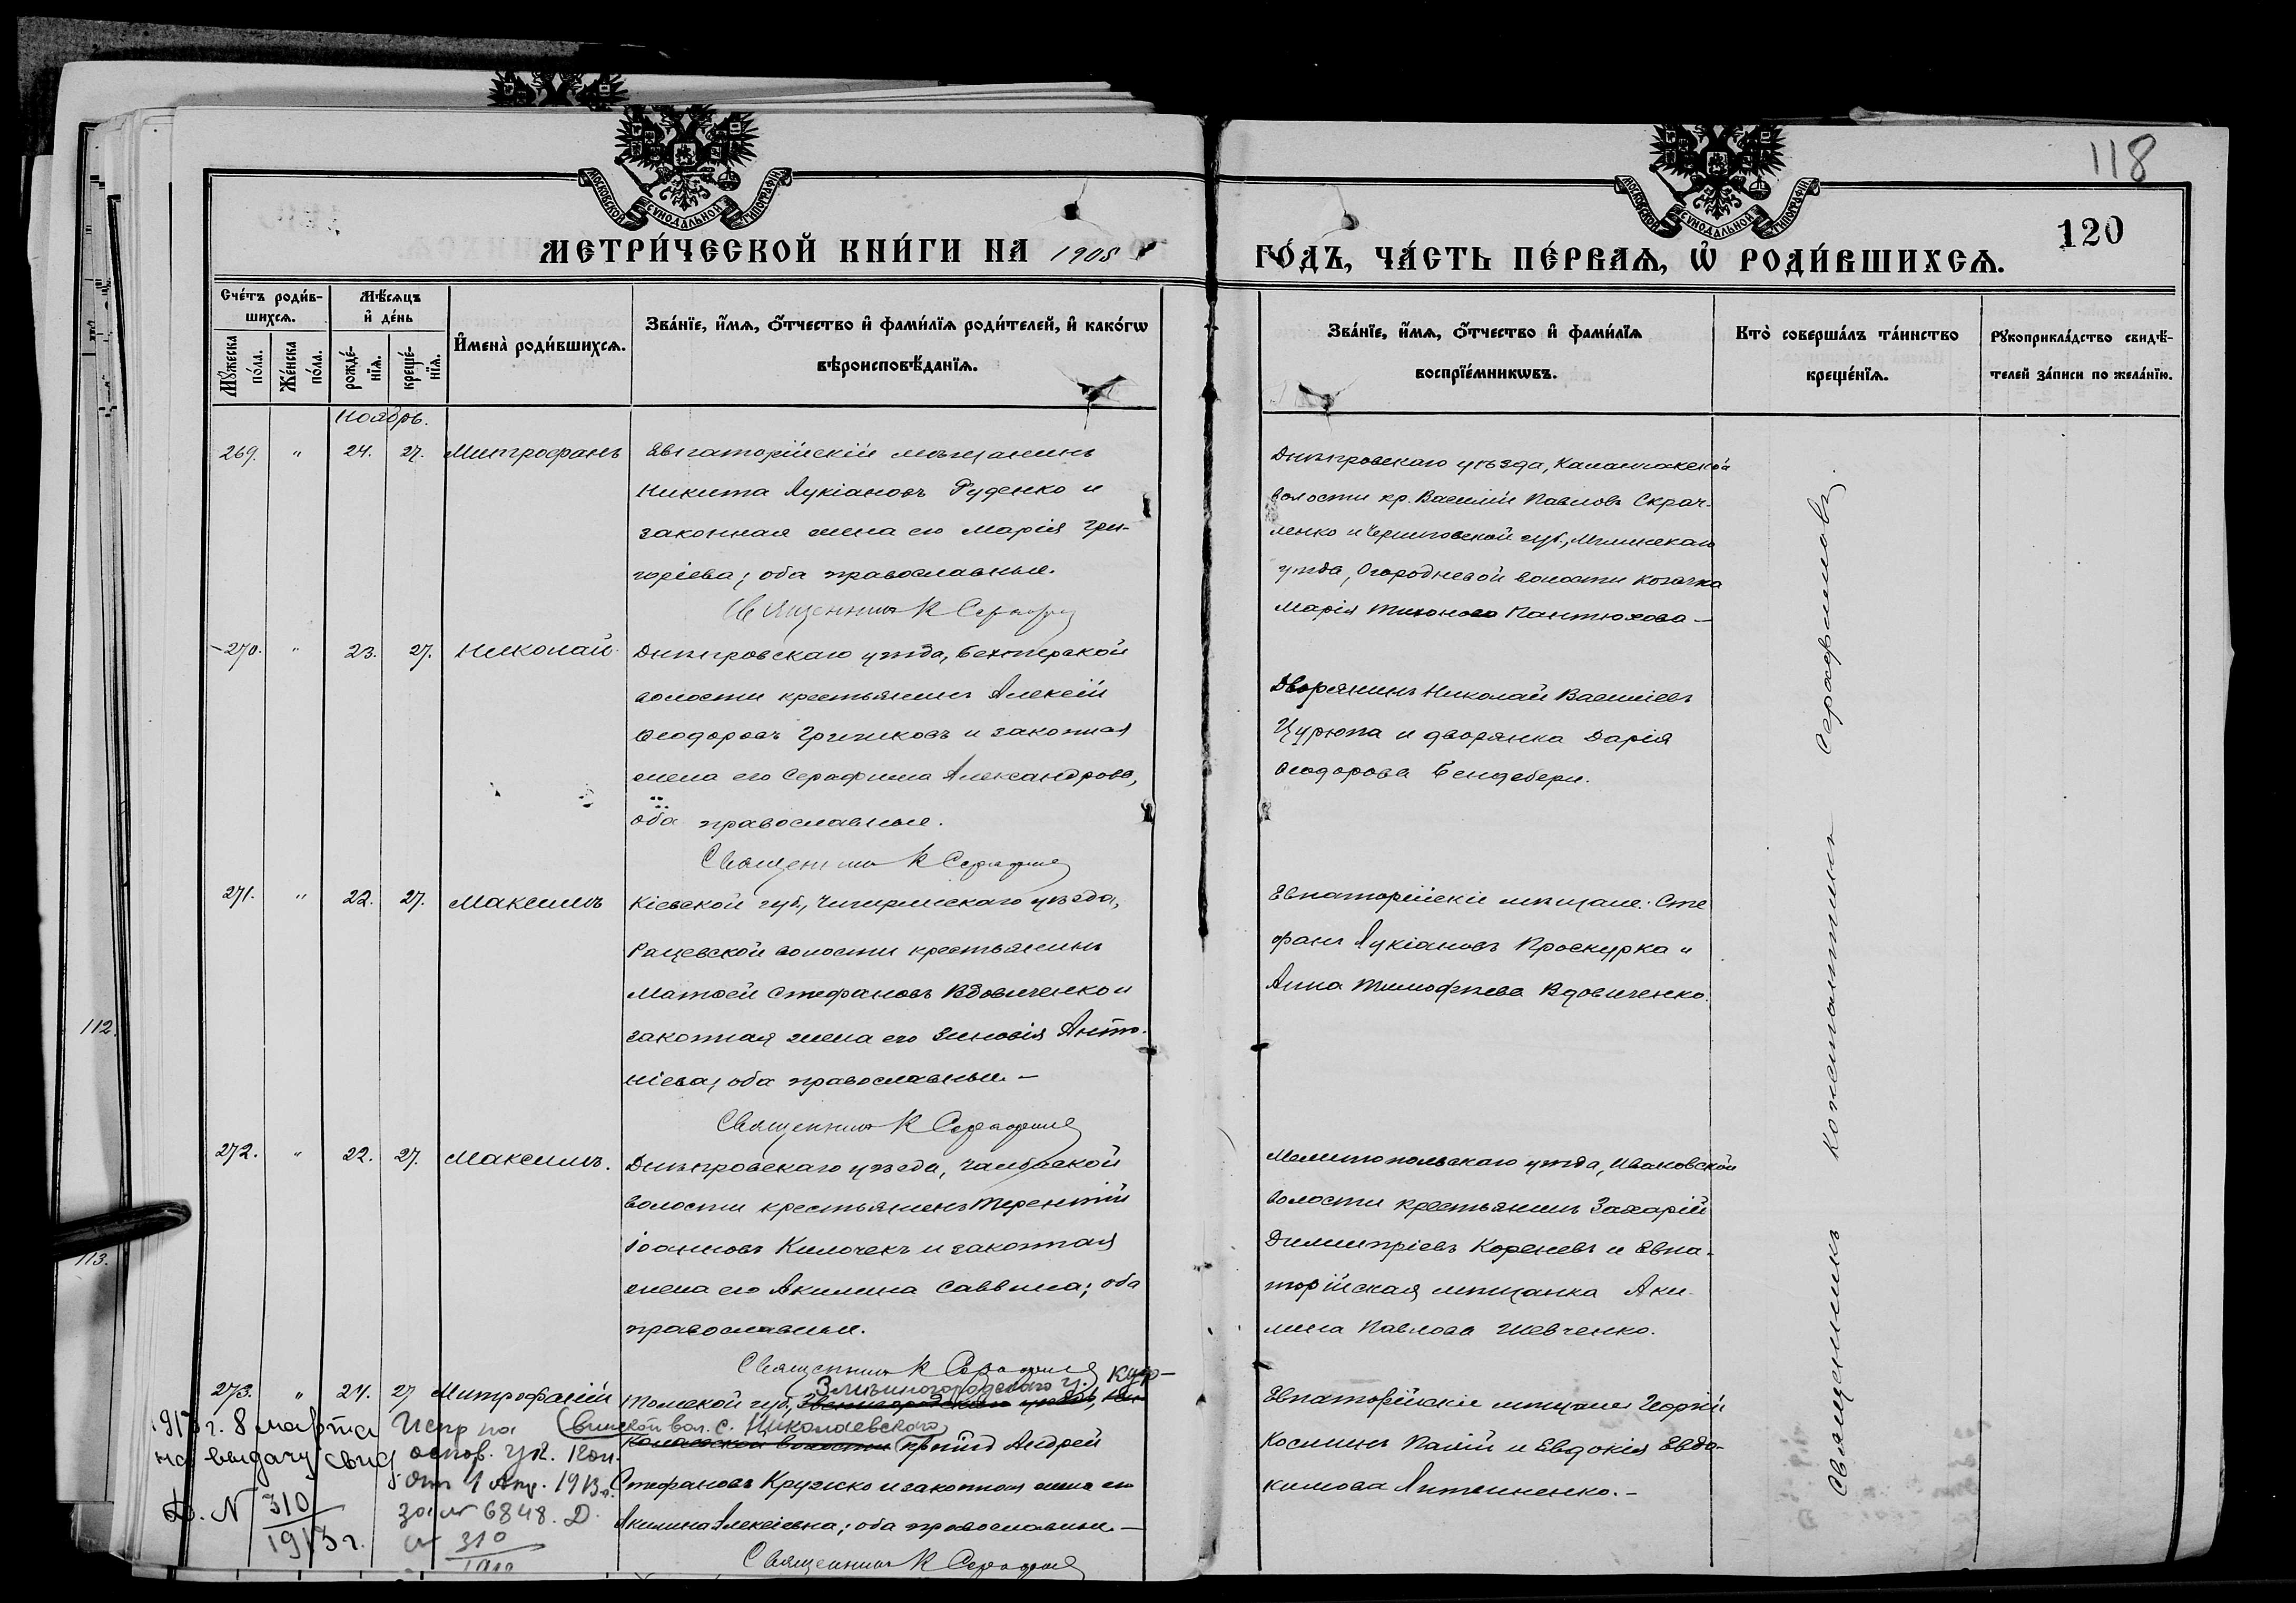 118
120
МОСКОВСКОЙ СѴНОДАЛЬНОЙ ТИПОГРАФІИ
МОСКОВСКОЙ СѴНОДАЛЬНОЙ ТИПОГРАФІИ
МЕТРИ́ЧЕСКОЙ КНИ́ГИ НА 1908
ГО́ДЪ, ЧА́СТЬ ПЕ́РВАѦ, Ѡ҆ РОДИ́ВШИХСѦ.
Сче́тъ роди́в-
шихсѧ.
Мѣ́сѧцъ
и҆ де́нь
Мꙋ́жеска по́ла.
Же́нска по́ла.
рожде́-
нїѧ.
креще́-
нїѧ.
И҆мена̀ роди́вшихсѧ.
Зва́нїе, и҆́мѧ, ѻ҆́тчество и҆ фами́лїѧ роди́телей, и҆ како́гѡ
вѣроисповѣ́данїѧ.
Зва́нїе, и҆́мѧ, ѻ҆́тчество и҆ фами́лїѧ
воспрїе́мникѡвъ.
Кто̀ соверша́лъ та́инство
креще́нїѧ.
Рꙋкоприкла́дство свидѣ́-
телей за́писи по жела́нїю.
Ноябрь.
269. " 24. 27. Митрофанъ
Евпаторійскій мѣщанинъ
Никита Лукіановъ Руденко и
законная жена его Марія Гри-
горіева; оба православные.
Священникъ К Серафим
Днѣпровскаго уѣзда, Каланчакской
волости кр. Василій Павловъ Скрач-
ленко и Черниговской губ., Мглинскаго
уѣзда, Огородневой волости козачка
Марія Тихонова Пантюхова —
270. " 23. 27. Николай.
Днѣпровскаго уѣзда, Бехтерской
волости крестьянинъ Алексій
Ѳеодоровъ Грижковъ и законная
жена его Серафима Александрова,
оба православные.
Священникъ К Серафим
Дворянинъ Николай Васильевъ
Цурюпа и дворянка Дарія
Ѳеодорова Бендебери.
271. " 22. 27. Максимъ
Кіевской губ., Чигиринскаго уѣзда,
Рацевской волости крестьянинъ
Матѳей Стефановъ Вдовиченко и
законная жена его Зиновія Анто-
ніева; оба православные —
Священникъ К Серафим
Евпаторійскіе мѣщане: Сте
фанъ Лукіановъ Проскурка и
Анна Тимофѣева Вдовиченко.
112.
272. " 22. 27. Максимъ.
Днѣпровскаго уѣзда, Чалбаской
волости крестьянинъ Терентій
Іоанновъ Килочекъ и законная
жена его Акилина Саввина; оба
православные.
Священникъ К Серафим
Мелитопольскаго уѣзда, Ивановской
волости крестьянинъ Захарій
Димитріевъ Кореневъ и Евпа-
торійская мѣщанка Аки-
лина Павлова Шевченко.
113.
273. " 24. 27 Митрофаній
Змѣиногородскаго у. Кур-
Томской губ., Звенигородскаго уѣзда,
вьинской вол. с. Николаевскаго
волости кр-нинъ Андрей
Стефановъ Кружко и законная жена его
Акилина Алексіевна; оба православные. —
Священникъ К Серафим
Евпаторійскіе мѣщане Георгій
Космынъ Палій и Евдокія Евдо-
кимова Литвиненко. —
1913 г. 8 марта
на выдачу свид
Д. N 310
1913 г.
Испр на
основ. ук. Кон.
от 4 Апр. 1913 г.
за № 6848. Д.
№ 310
Священникъ Константинъ Серафимовъ.